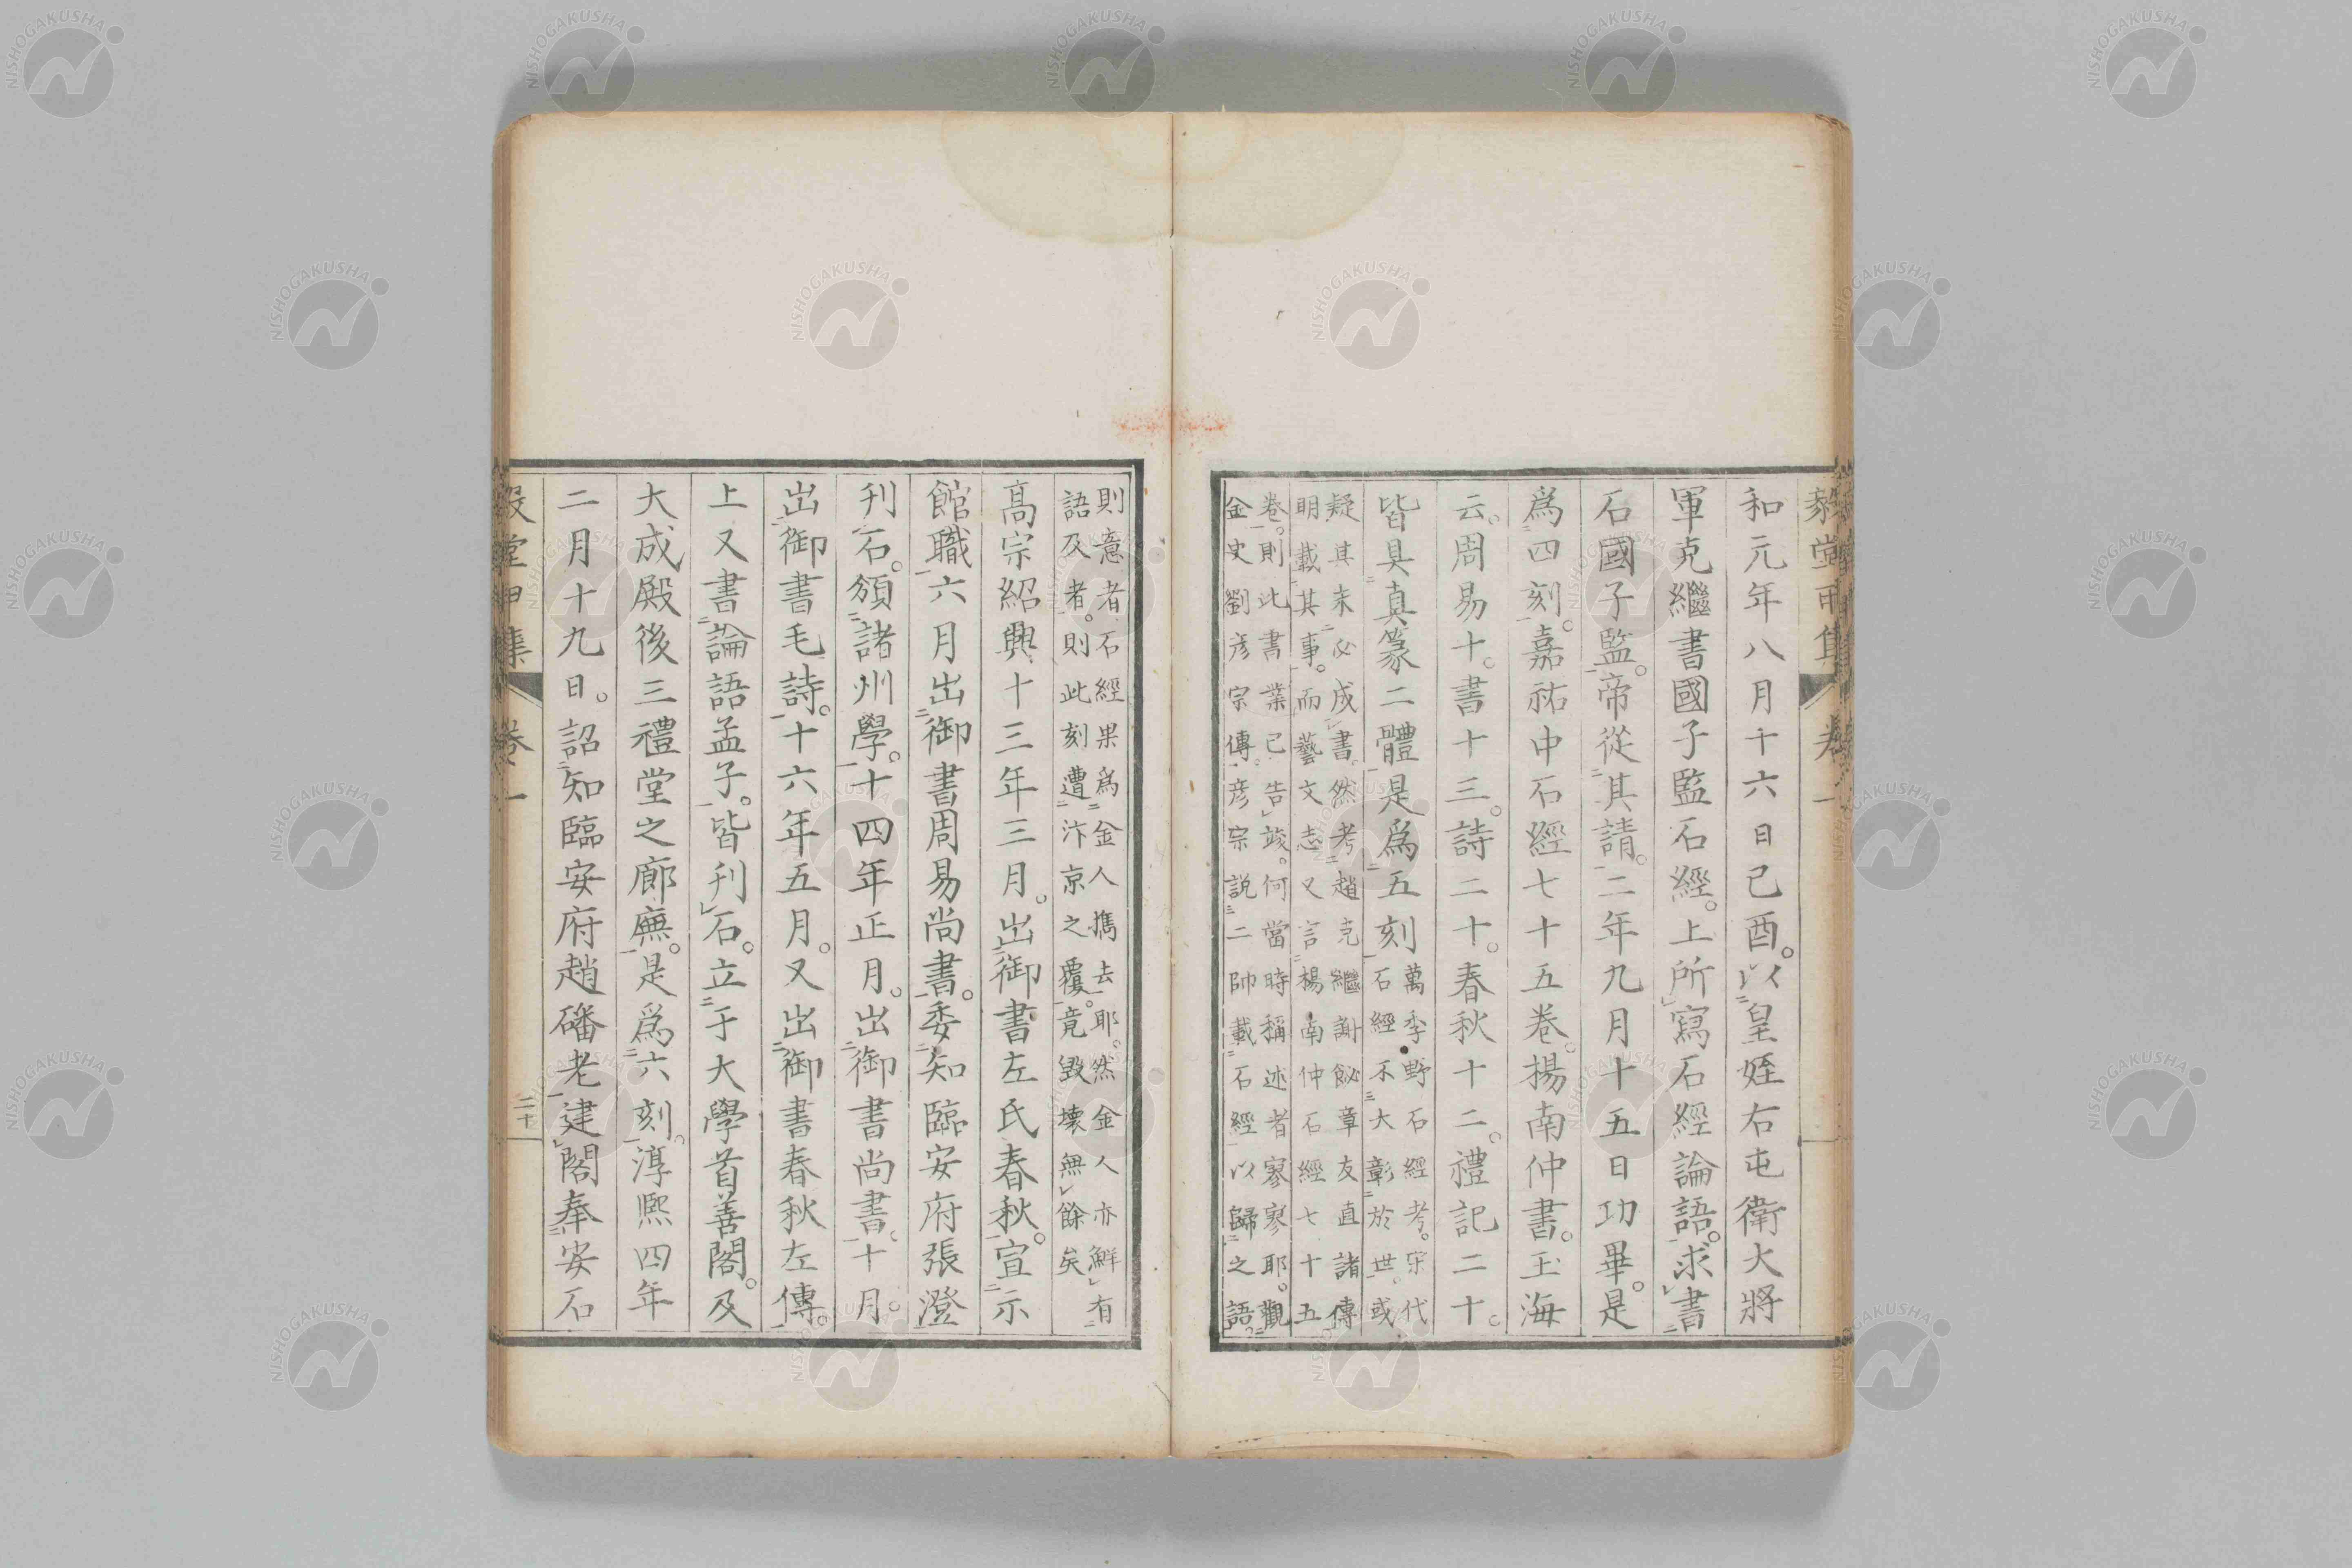 毅堂丙集 卷一
和元年八月十六日己酉。以皇姪右屯衛大將
軍克繼書國子監石經。上所寫石經論語。求書
石國子監。帝從其請。二年九月十五日功畢。是
爲四刻。嘉祐中石經七十五卷。揚南仲書。玉海
云。周易十。書十三。詩二十。春秋十二。禮記二十。
皆具真篆二體是爲五刻
萬季野石經考。宋代
石經不大彰於世。或
疑其未必成書。然考趙克繼謝飶章友直諸傳
明載其事。而藝文志又言楊南仲石經七十五
卷。則此書業已告竣。何當時稱述者寥寥耶。觀
金史劉彦宗傳。彦宗説二帥載石經以歸之語。
則意者石經果爲金人攜去耶。然金人亦鮮有
語及者。則此刻遭汴京之覆。竟毀壞無餘矣
高宗紹興十三年三月。出御書左氏春秋。宣示
館職六月出御書周易尚書。委知臨安府張澄
刊石。頒諸州學。十四年正月。出御書尚書。十月。
出御書毛詩。十六年五月。又出御書春秋左傳。
上又書論語孟子。皆刊石。立于大學首善閣。及
大成殿後三禮堂之廊廡。是爲六刻。淳熙四年
二月十九日。詔知臨安府趙磻老建閣奉安石
毅堂丙集 卷一 二十